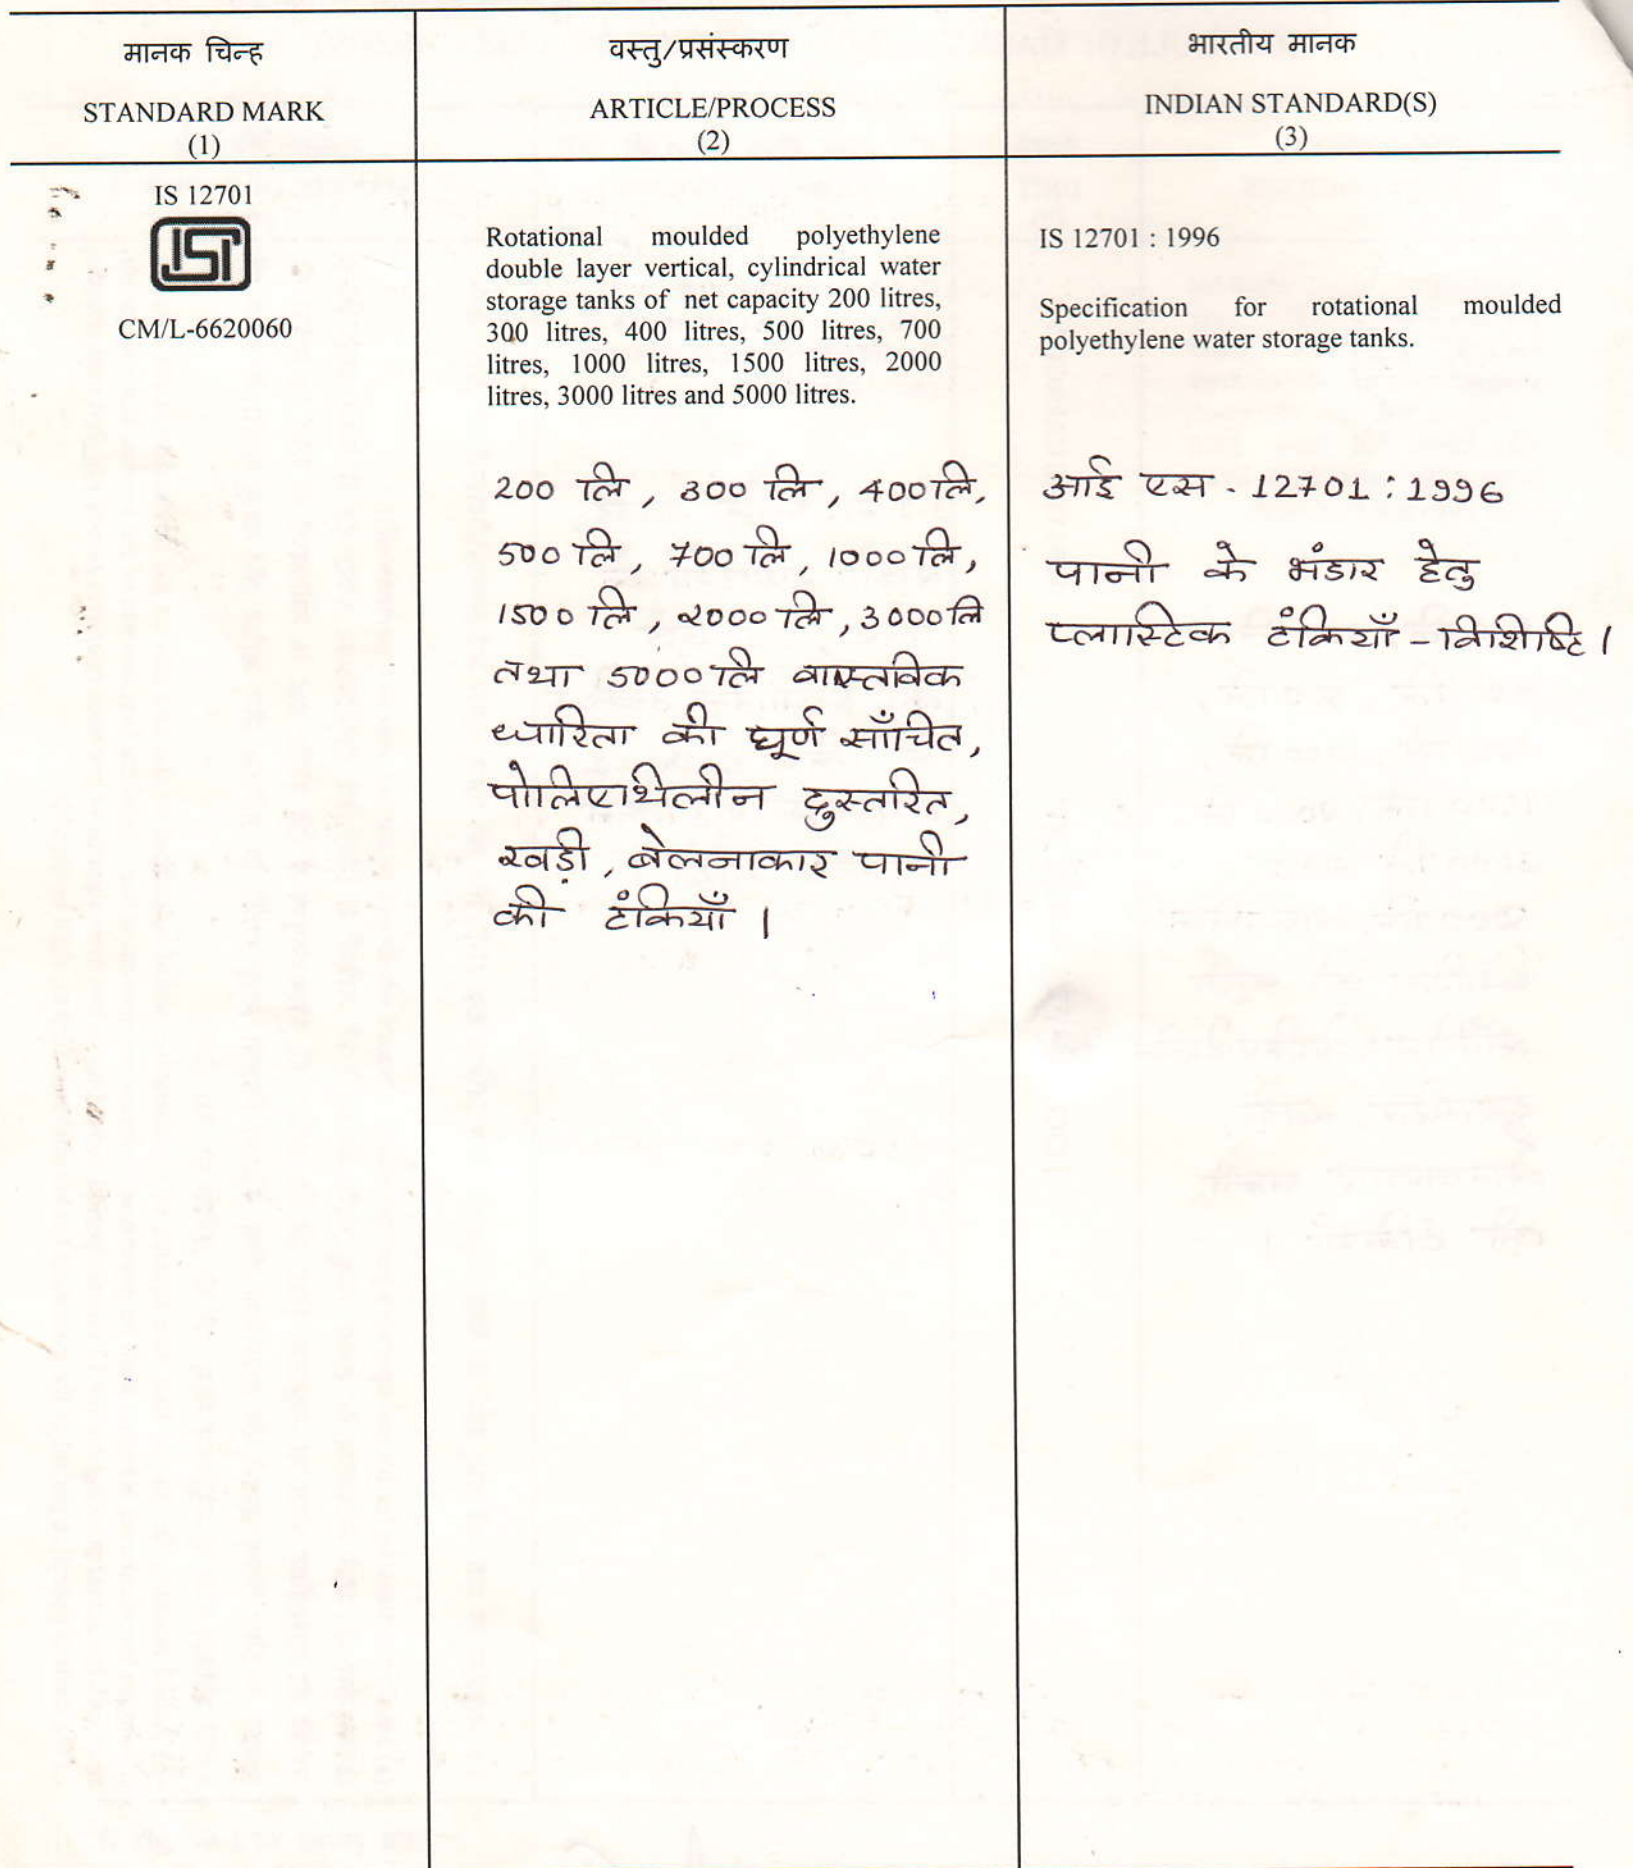 मानक चिन्ह
STANDARD MARK
(1)
वस्तु/प्रसंस्करण
ARTICLE/PROCESS
(2)
भारतीय मानक
INDIAN STANDARD(S)
(3)
IS 12701
ISI
CM/L-6620060
Rotational moulded polyethylene
double layer vertical, cylindrical water
storage tanks of net capacity 200 litres,
300 litres, 400 litres, 500 litres, 700
litres, 1000 litres, 1500 litres, 2000
litres, 3000 litres and 5000 litres.
200 लि, 300 लि, 400 लि,
500 लि, 700 लि, 1000 लि,
1500 लि, 2000 लि, 3000 लि
तथा 5000 लि वास्तविक
धारिता की घूर्ण साँचित,
पोलिएथिलीन दुस्तरित,
खड़ी, बेलनाकार पानी
की टंकियाँ।
IS 12701 : 1996
Specification for rotational moulded
polyethylene water storage tanks.
आई एस - 12701 : 1996
पानी के भंडार हेतु
प्लास्टिक टंकियाँ - विशिष्टि।